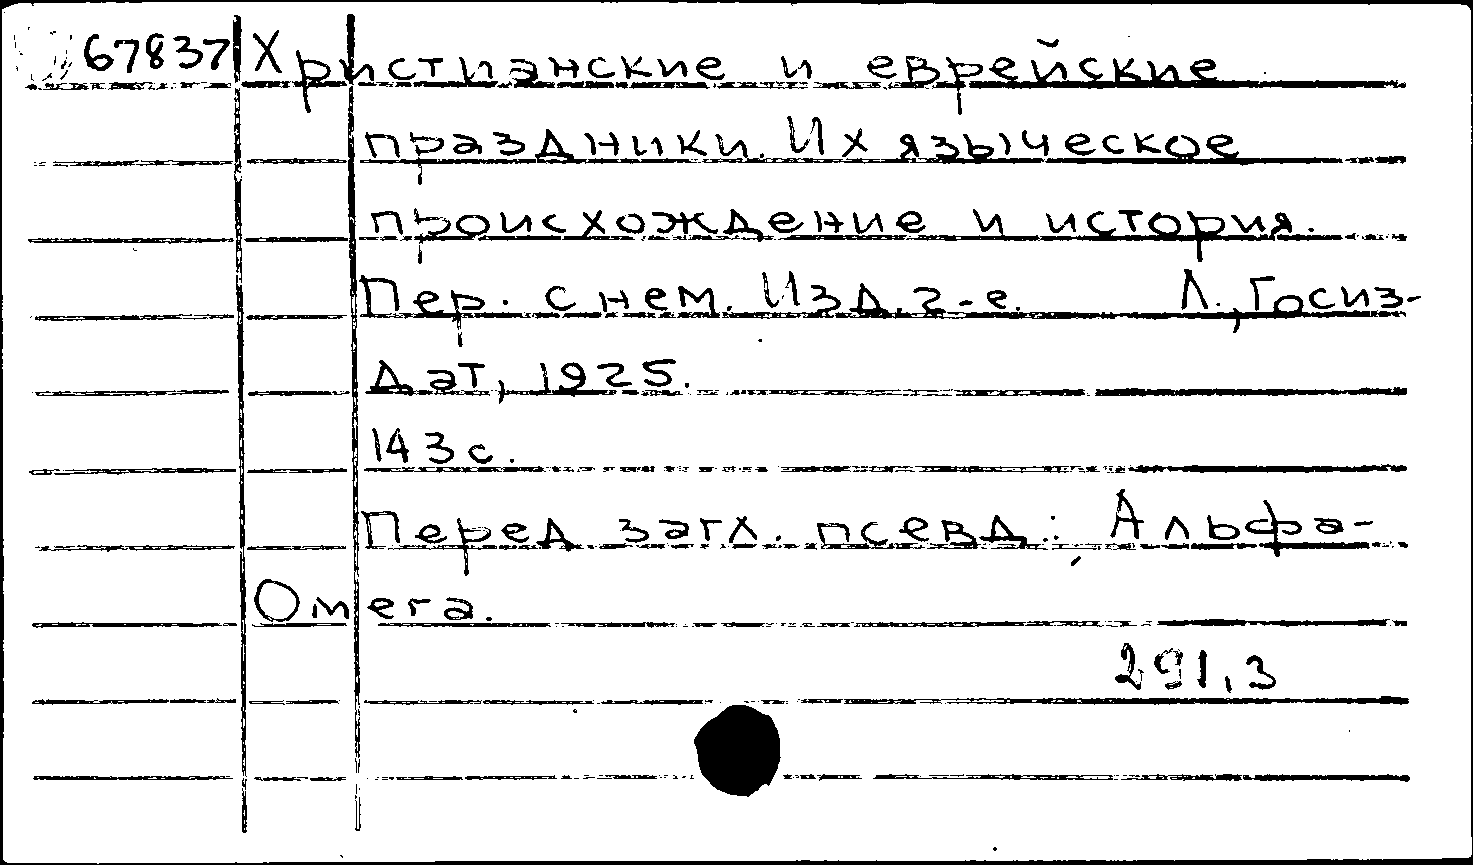 67837 Христианские и еврейские
праздники. Их языческое
происхождение и история.
Пер. с нем. Изд. 2-е. Л., Госиз-
дат, 1925.
143 с.
Перед загл. псевд.: Альфа-
Омега.
291.3